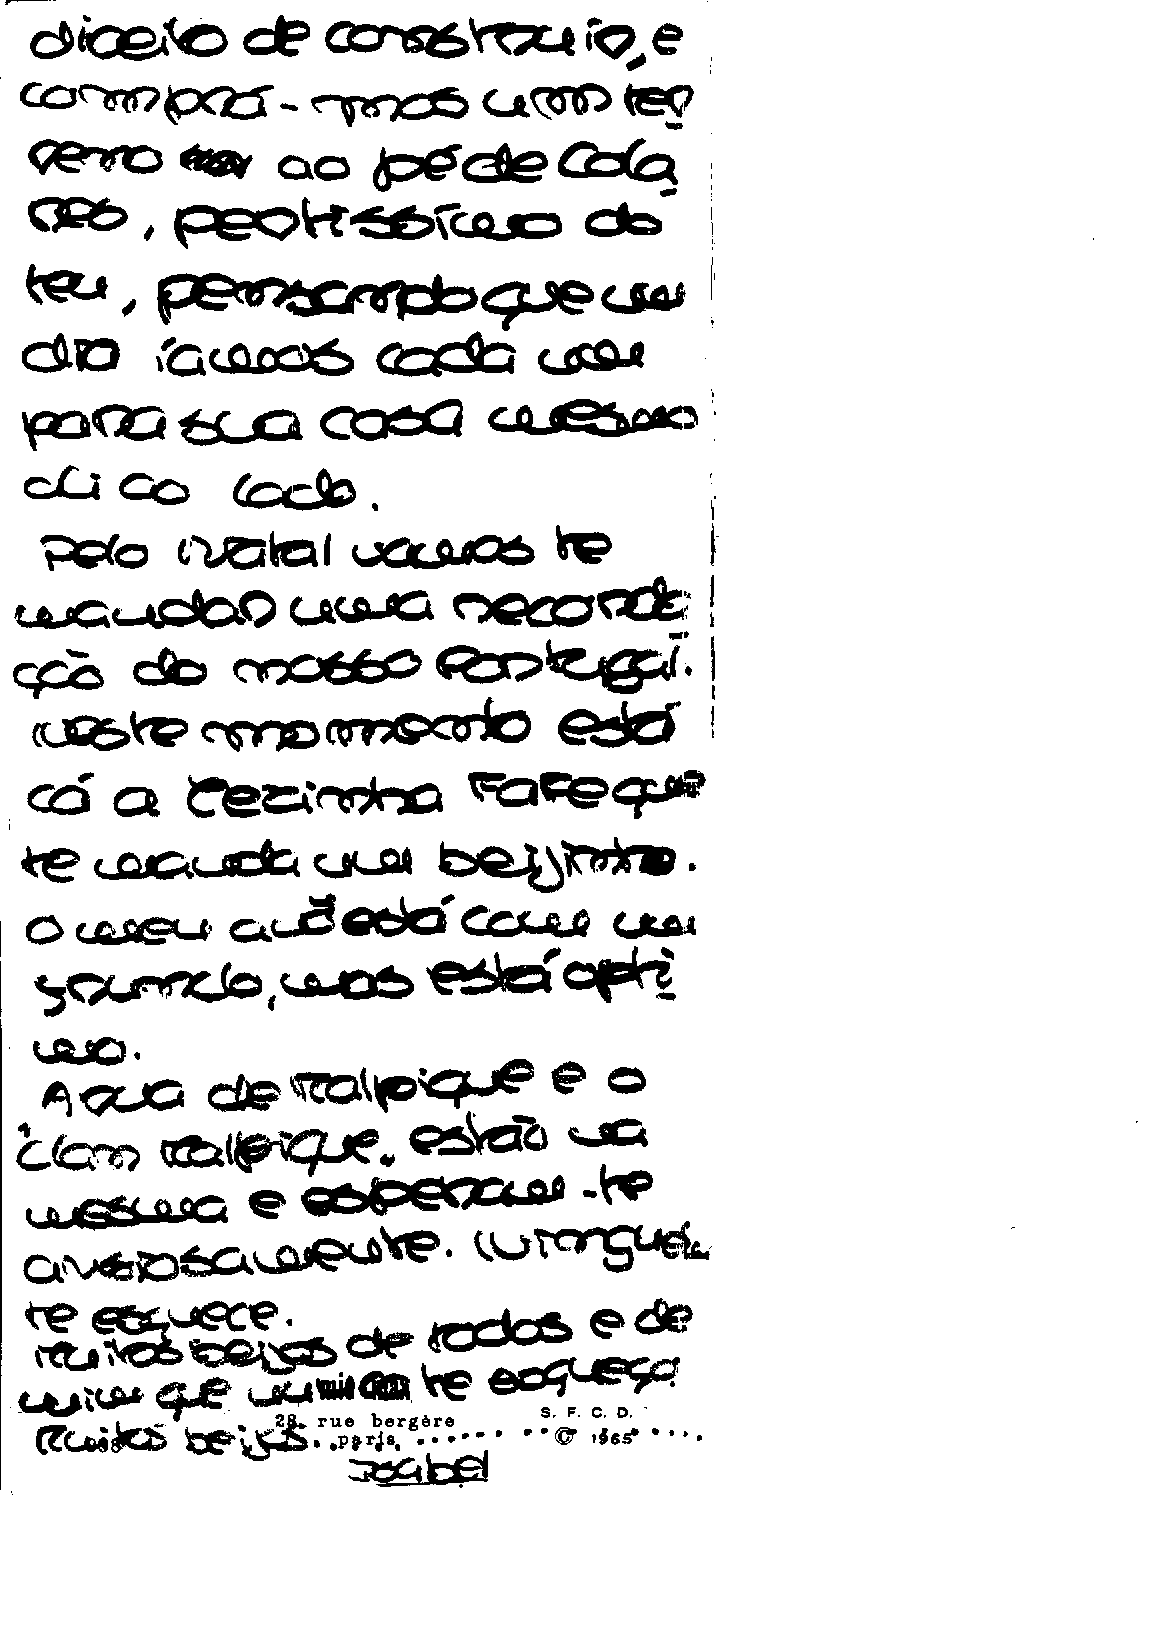 direito de construir, e
comprá-mos um ter
reno ao pé de Cola
res, pertissimo do
teu, pensando que um
dia íamos cada um
para sua casa mesmo
ali ao lado.
Pelo Natal vamos te
mandar uma recorda
ção do nosso Portugal.
Neste momento está
cá a Terezinha Fafe que
te manda um beijinho.
O meu avô está com um
grande, mas está ópti
mo.
A rua de Malpique e o
clan Malpique estão na
mesma e esperam-te
anciosamente. Ninguém
te esquece.
Muitos beijos de todos e de
mim que nunca te esqueça
Muitos beijos.
28, rue bergère
paris
S. F. C. D.
© 1965
Isabel